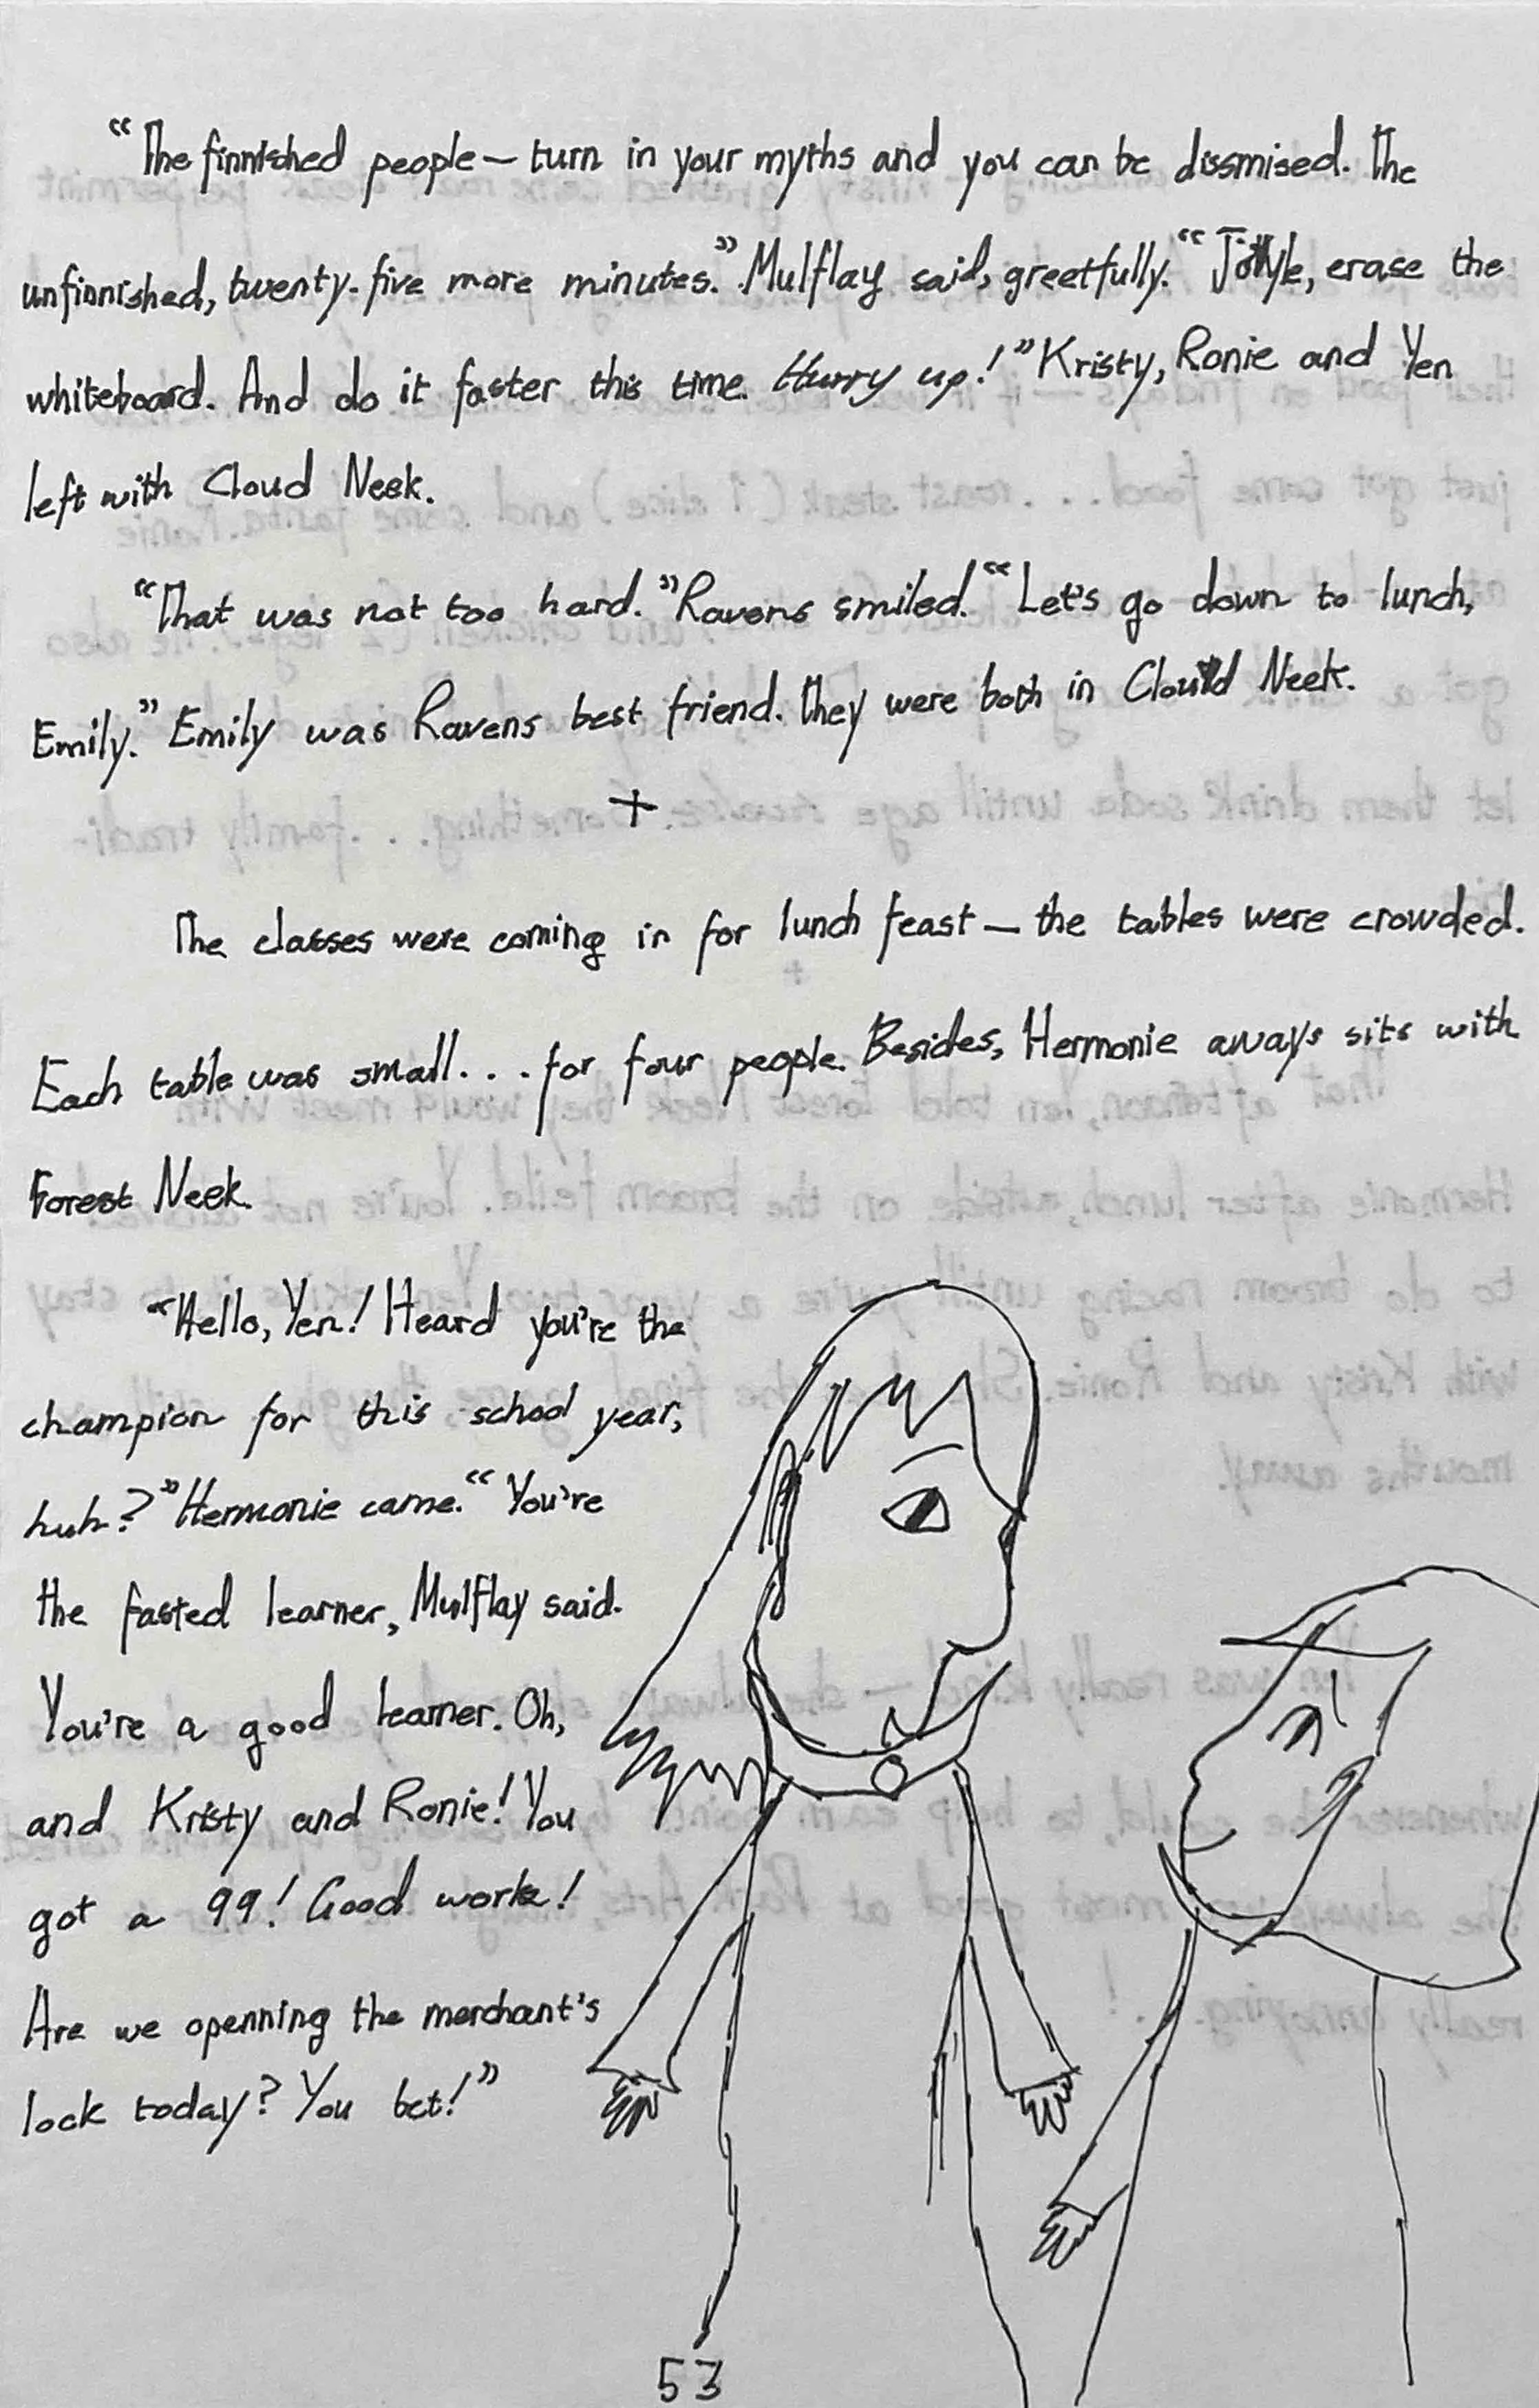 “The finnished people — turn in your myths and you can be dissmised. The
unfinnished, twenty-five more minutes.” Mulflay said, greetfully. “Jotyle, erase the
whiteboard. And do it faster this time. Hurry up!” Kristy, Ronie and Yen
left with Cloud Neek.
“That was not too hard.” Ravens smiled. “Let's go down to lunch,
Emily.” Emily was Ravens best friend. They were both in Cloud Neek.
+
The classes were coming in for lunch feast — the tables were crowded.
Each table was small... for four people. Besides, Hermonie aways sits with
Forest Neek.
“Hello, Yen! Heard you're the
champion for this school year,
huh?” Hermonie came. “You're
the fasted learner, Mulflay said.
You're a good learner. Oh,
and Kristy and Ronie! You
got a 99! Good work!
Are we openning the merchant's
lock today? You bet!”
53